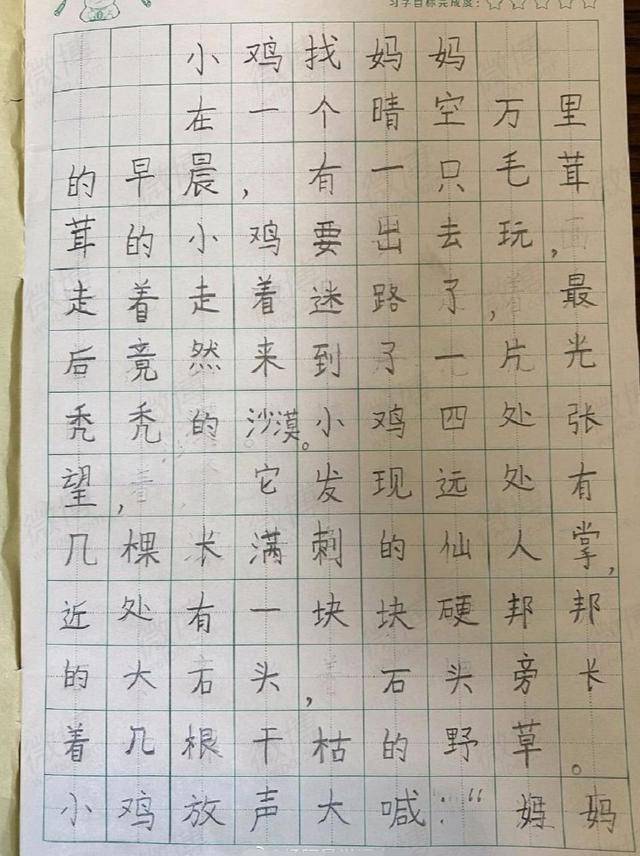 习字目标完成度：☆☆☆☆☆
小鸡找妈妈
在一个晴空万里
的早晨，有一只毛茸
茸的小鸡要出去玩，
走着走着迷路了，最
后竟然来到了一片光
秃秃的沙漠。小鸡四处张
望，它发现远处有
几棵长满刺的仙人掌，
近处有一块块硬邦邦
的大石头，石头旁长
着几根干枯的野草。
小鸡放声大喊：“妈妈